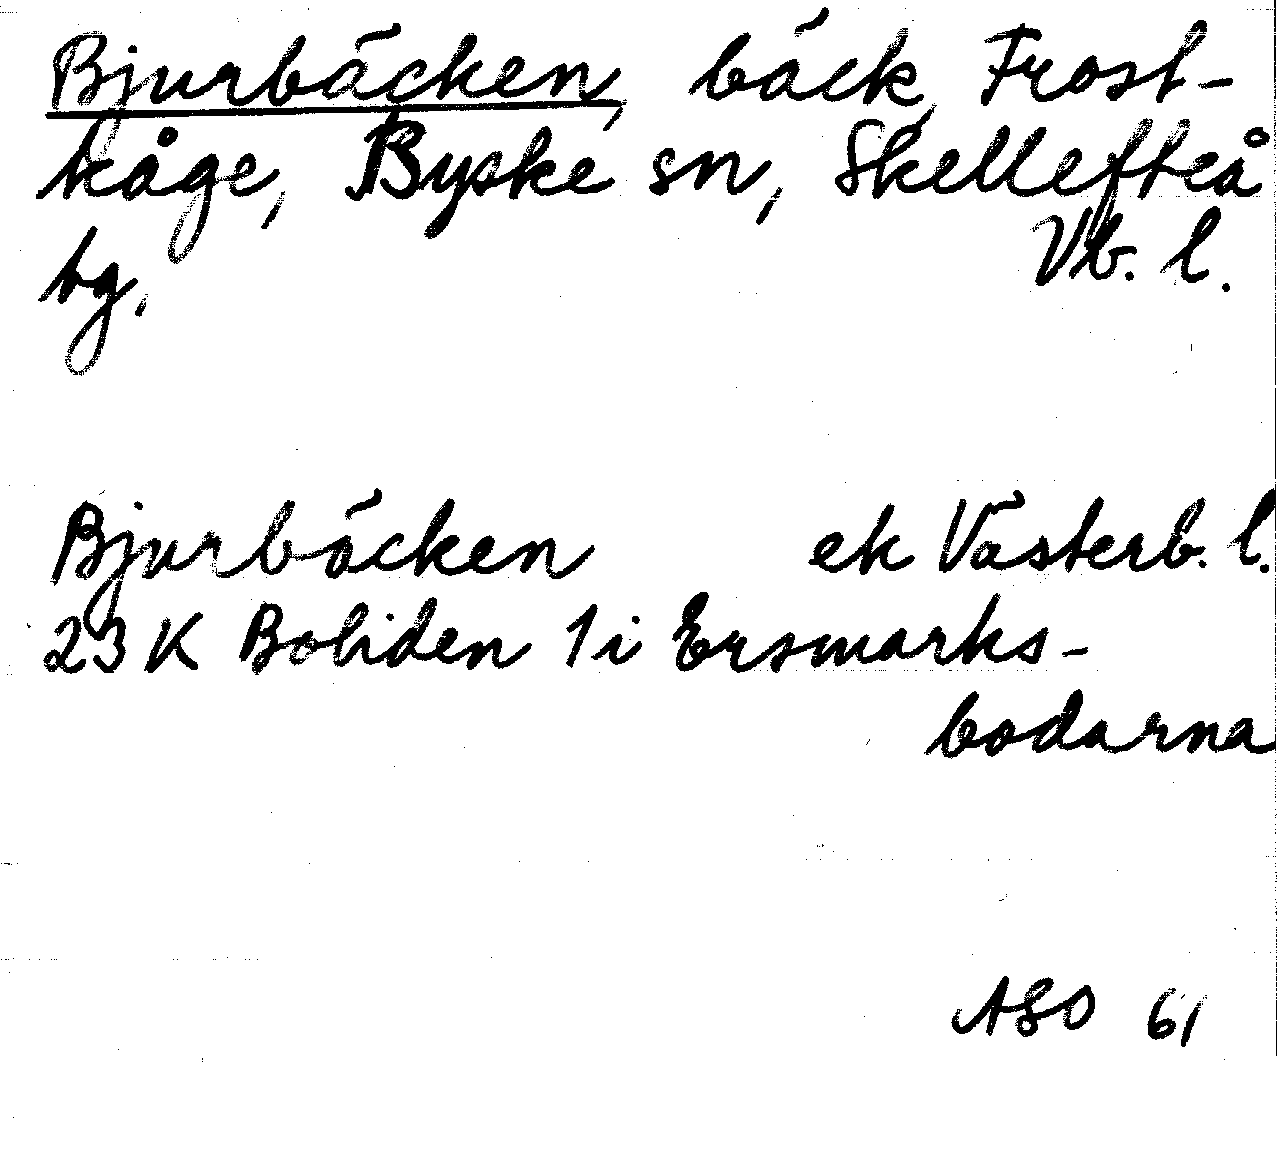 Bjurbäcken, bäck, Frost-
kåge, Byske sn, Skellefteå
tg. Vb. l.
Bjurbäcken ek Västerb. l.
23 K Boliden 1 i Ersmarks-
bodarna
ASO 61